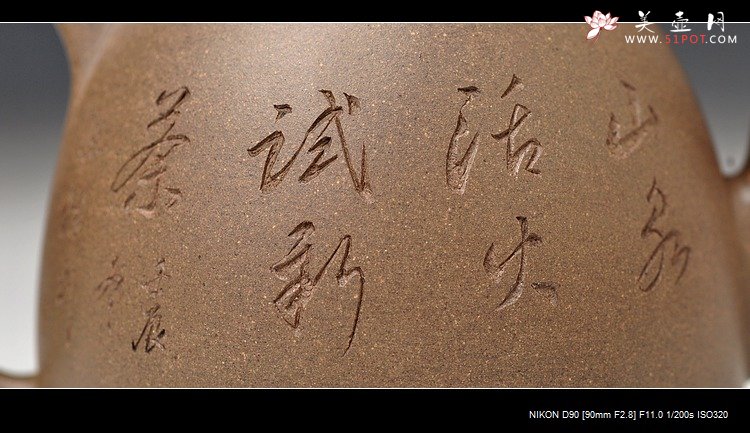 美壶网
WWW.51POT.COM
山泉
活火
试新
茶
壬辰
NIKON D90 [90mm F2.8] F11.0 1/200s ISO320